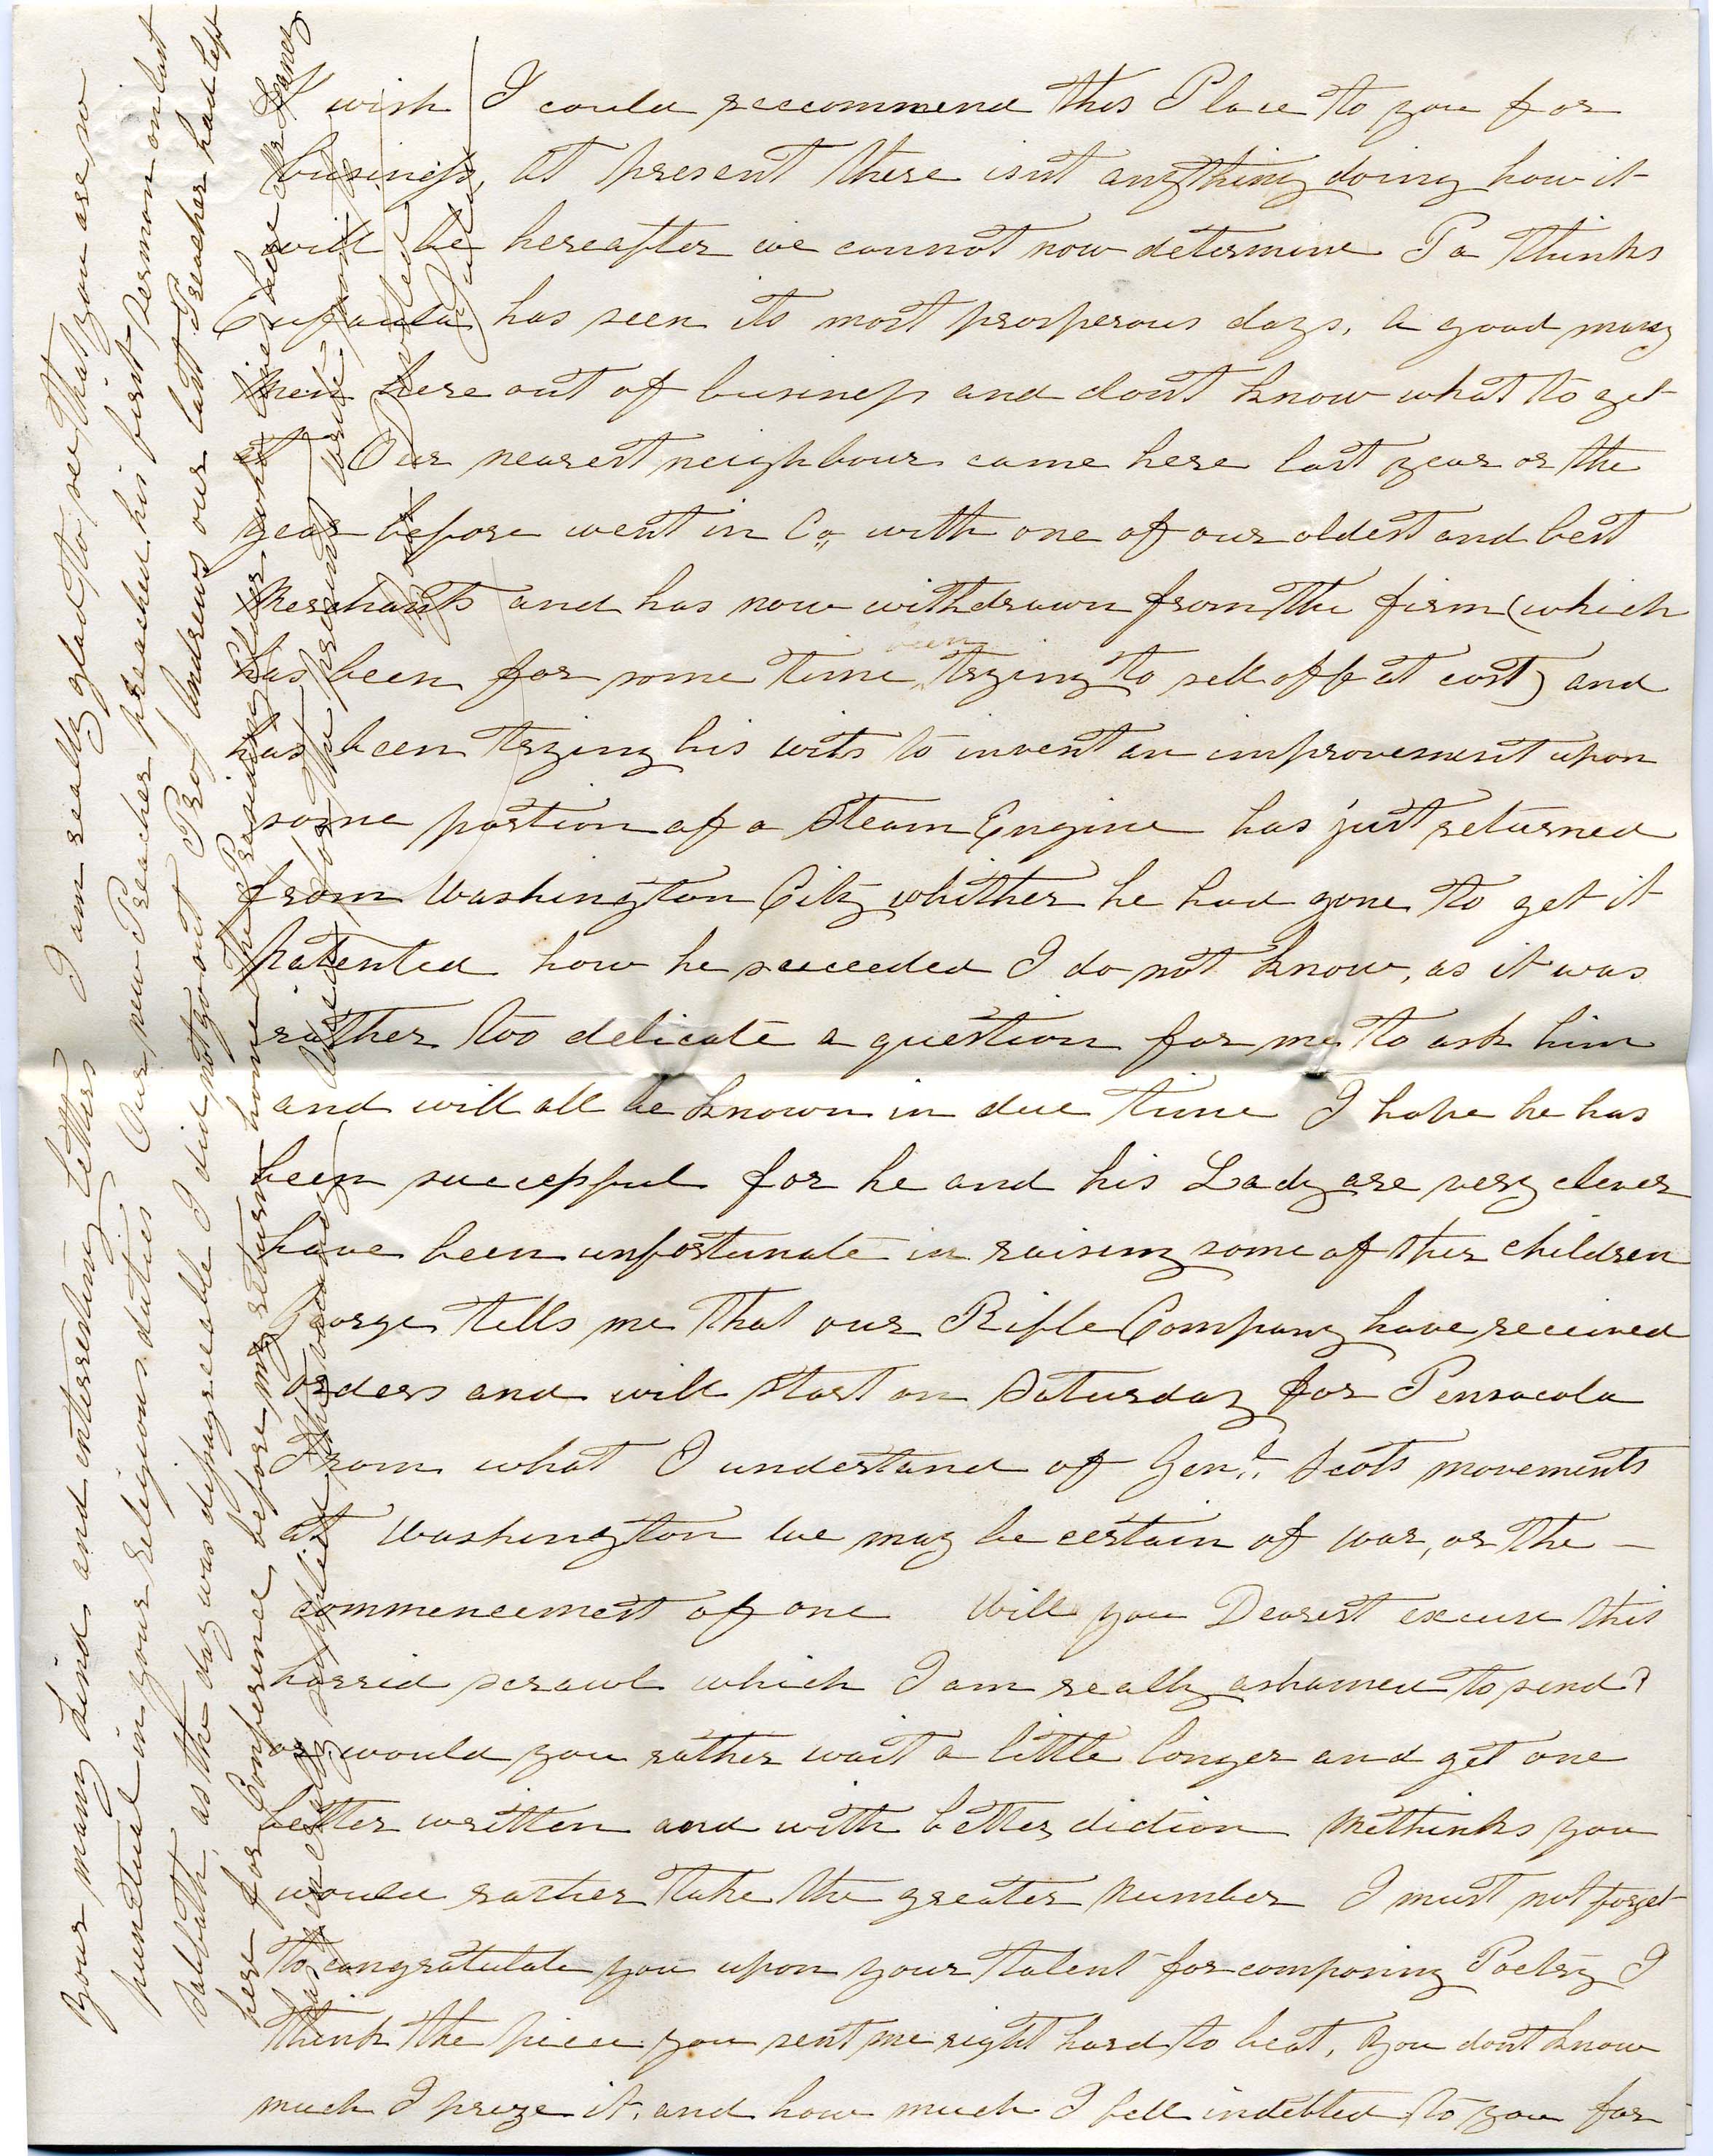 I wish I could reccommend this Place to you for
business, at present there isnt anything doing how it
will be hereafter we cannot now determine Pa thinks
Eufaula has seen its most prosperous days, a good many
men here out of business and dont know what to get
at Our nearest neighbour came here last year or the
year before went in Co,, with one of our oldest and best
Merchants and has now withdrawn from the firm (which
has been for some time been trying to sell off at cost) and
has been trying his wits to invent an improvement upon
some portion of a Steam Engine has just returned
from Washington City whither he had gone to get it
Patented how he succeeded I do not know, as it was
rather too delicate a question for me to ask him
and will all be known in due time I hope he has
been successful for he and his Lady are very clever
have been unfortunate in raising some of ther children
George tells me that our Rifle Company have received
orders and will start on Saturday for Pensacola
From what I understand of Genl. Scots movements
at Washington we may be certain of war, or the -
commencement of one Will you Dearest excuse this
horrid scrawl which I am really ashamed to send?
or would you rather wait a little longer and get one
better written and with better diction Methinks you
would rather take the greater number I must not forget
to congratulate you upon your talent for composing Poetry I
think the piece you sent me right hard to beat, you dont know
much I prize it, and how much I fell indebted to you for
your many kind and interresting letters I am really glad to see that you are so
punctual in your religious duties Our new Preacher preached his first sermon on last
Sabbath, as the day was disagreeable I did not go out Prof Andrews our last Preacher had left
here for Conference before my return home The Presiding Elder who lives here Mr
has supplied the for the present